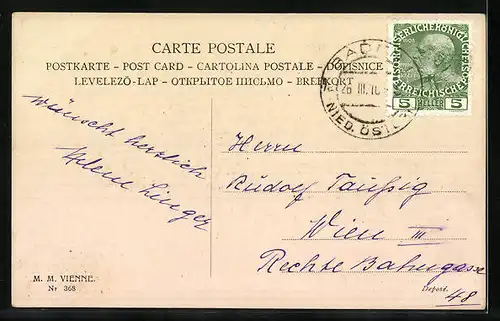 CARTE POSTALE
POSTKARTE - POST CARD - CARTOLINA POSTALE - DOPISNICE
LEVELEZŐ-LAP - ОТКРЫТОЕ ПИСЬМО - BREFKORT
26 III. 10
NIED. ÖST
5 HELLER 5
wünscht herzlich
Helene Linger
Herrn
Rudolf Taußig
Wien III
Rechte Bahngasse
48
M. M. VIENNE.
Nr 368
Déposé.